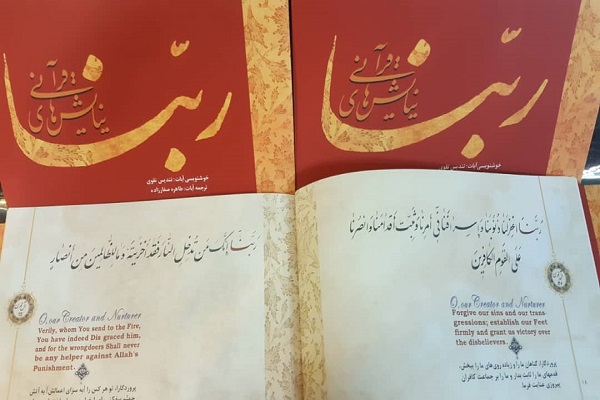 ربّنا
نیایش‌های قرآنی
خوشنویسی آیات: تندیس تقوی
ربّنا
نیایش‌های قرآنی
خوشنویسی آیات: تندیس تقوی
ترجمه آیات: طاهره صفارزاده
ربنا اغفر لنا ذنوبنا و إسرافنا في أمرنا و ثبت أقدامنا و انصرنا
على القوم الكافرين
O, our Creator and Nurturer
Forgive our sins and our trans-
gressions; establish our Feet
firmly and grant us victory over
the disbelievers.
پروردگارا، گناهان ما را و زیاده روی های ما را ببخش،
قدمهای ما را ثابت بدار و ما را بر جماعت کافران
پیروزی عنایت فرما
ربنا إنك من تدخل النار فقد أخزيته و ما للظالمين من أنصار
O, our Creator and Nurturer
Verily, whom You send to the Fire,
You have indeed Dis graced him,
and for the wrongdoers Shall never
be any helper against Allah's
Punishment.
پروردگارا، تو هر کس را (به سزای اعمالش) به آتش